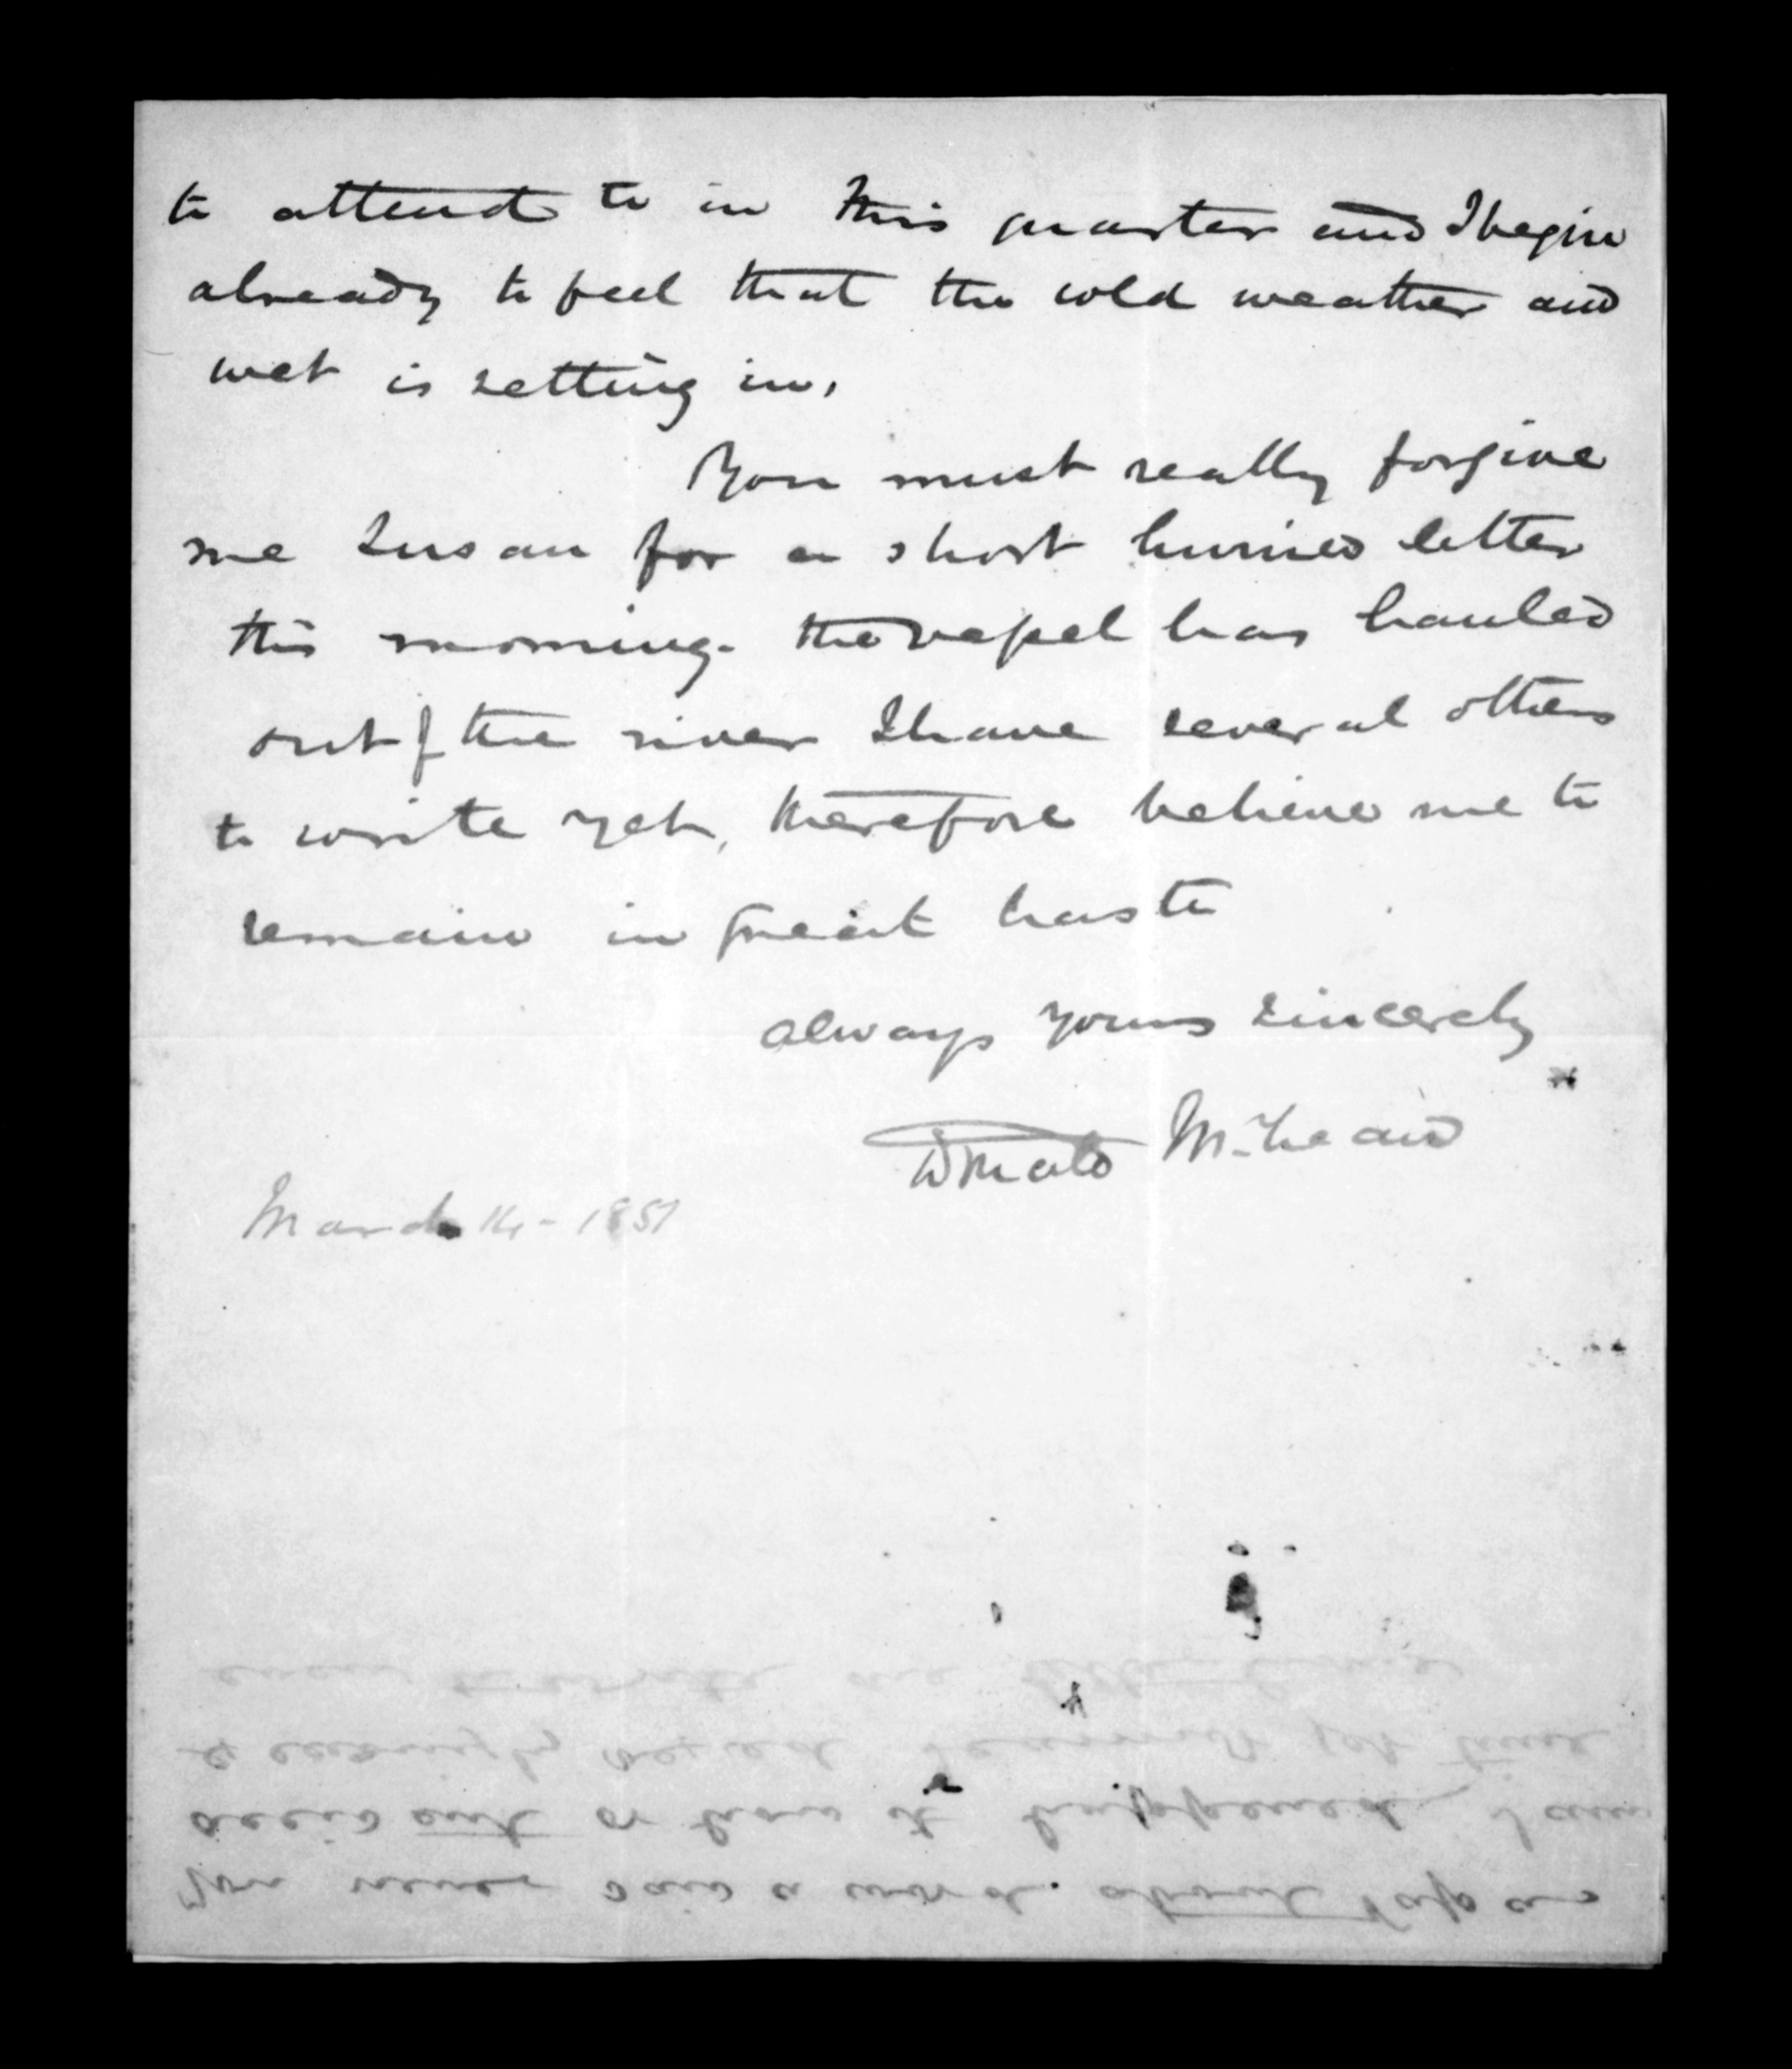 to attend to in this quarter and I begin
already to feel that the cold weather and
wet is setting in,
You must really forgive
me Susan for a short hurried letter
this morning. the vessel has hauled
out of the river I have several others
to write yet, therefore believe me to
remain in great haste
always yours sincerely
Donald McLean
March 14 - 1851